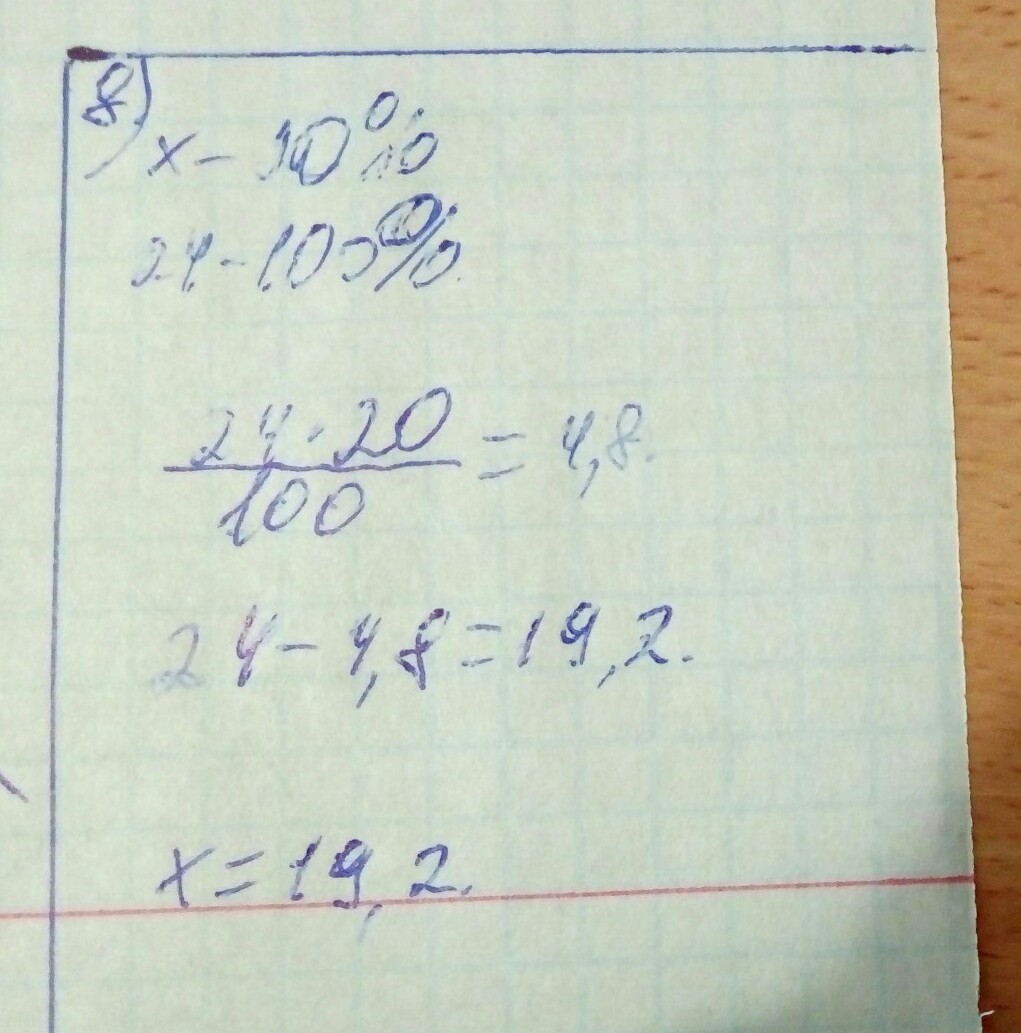 8)
x - 10%
24 - 100%
24 · 20
100
= 4,8.
24 - 4,8 = 19,2.
x = 19,2.